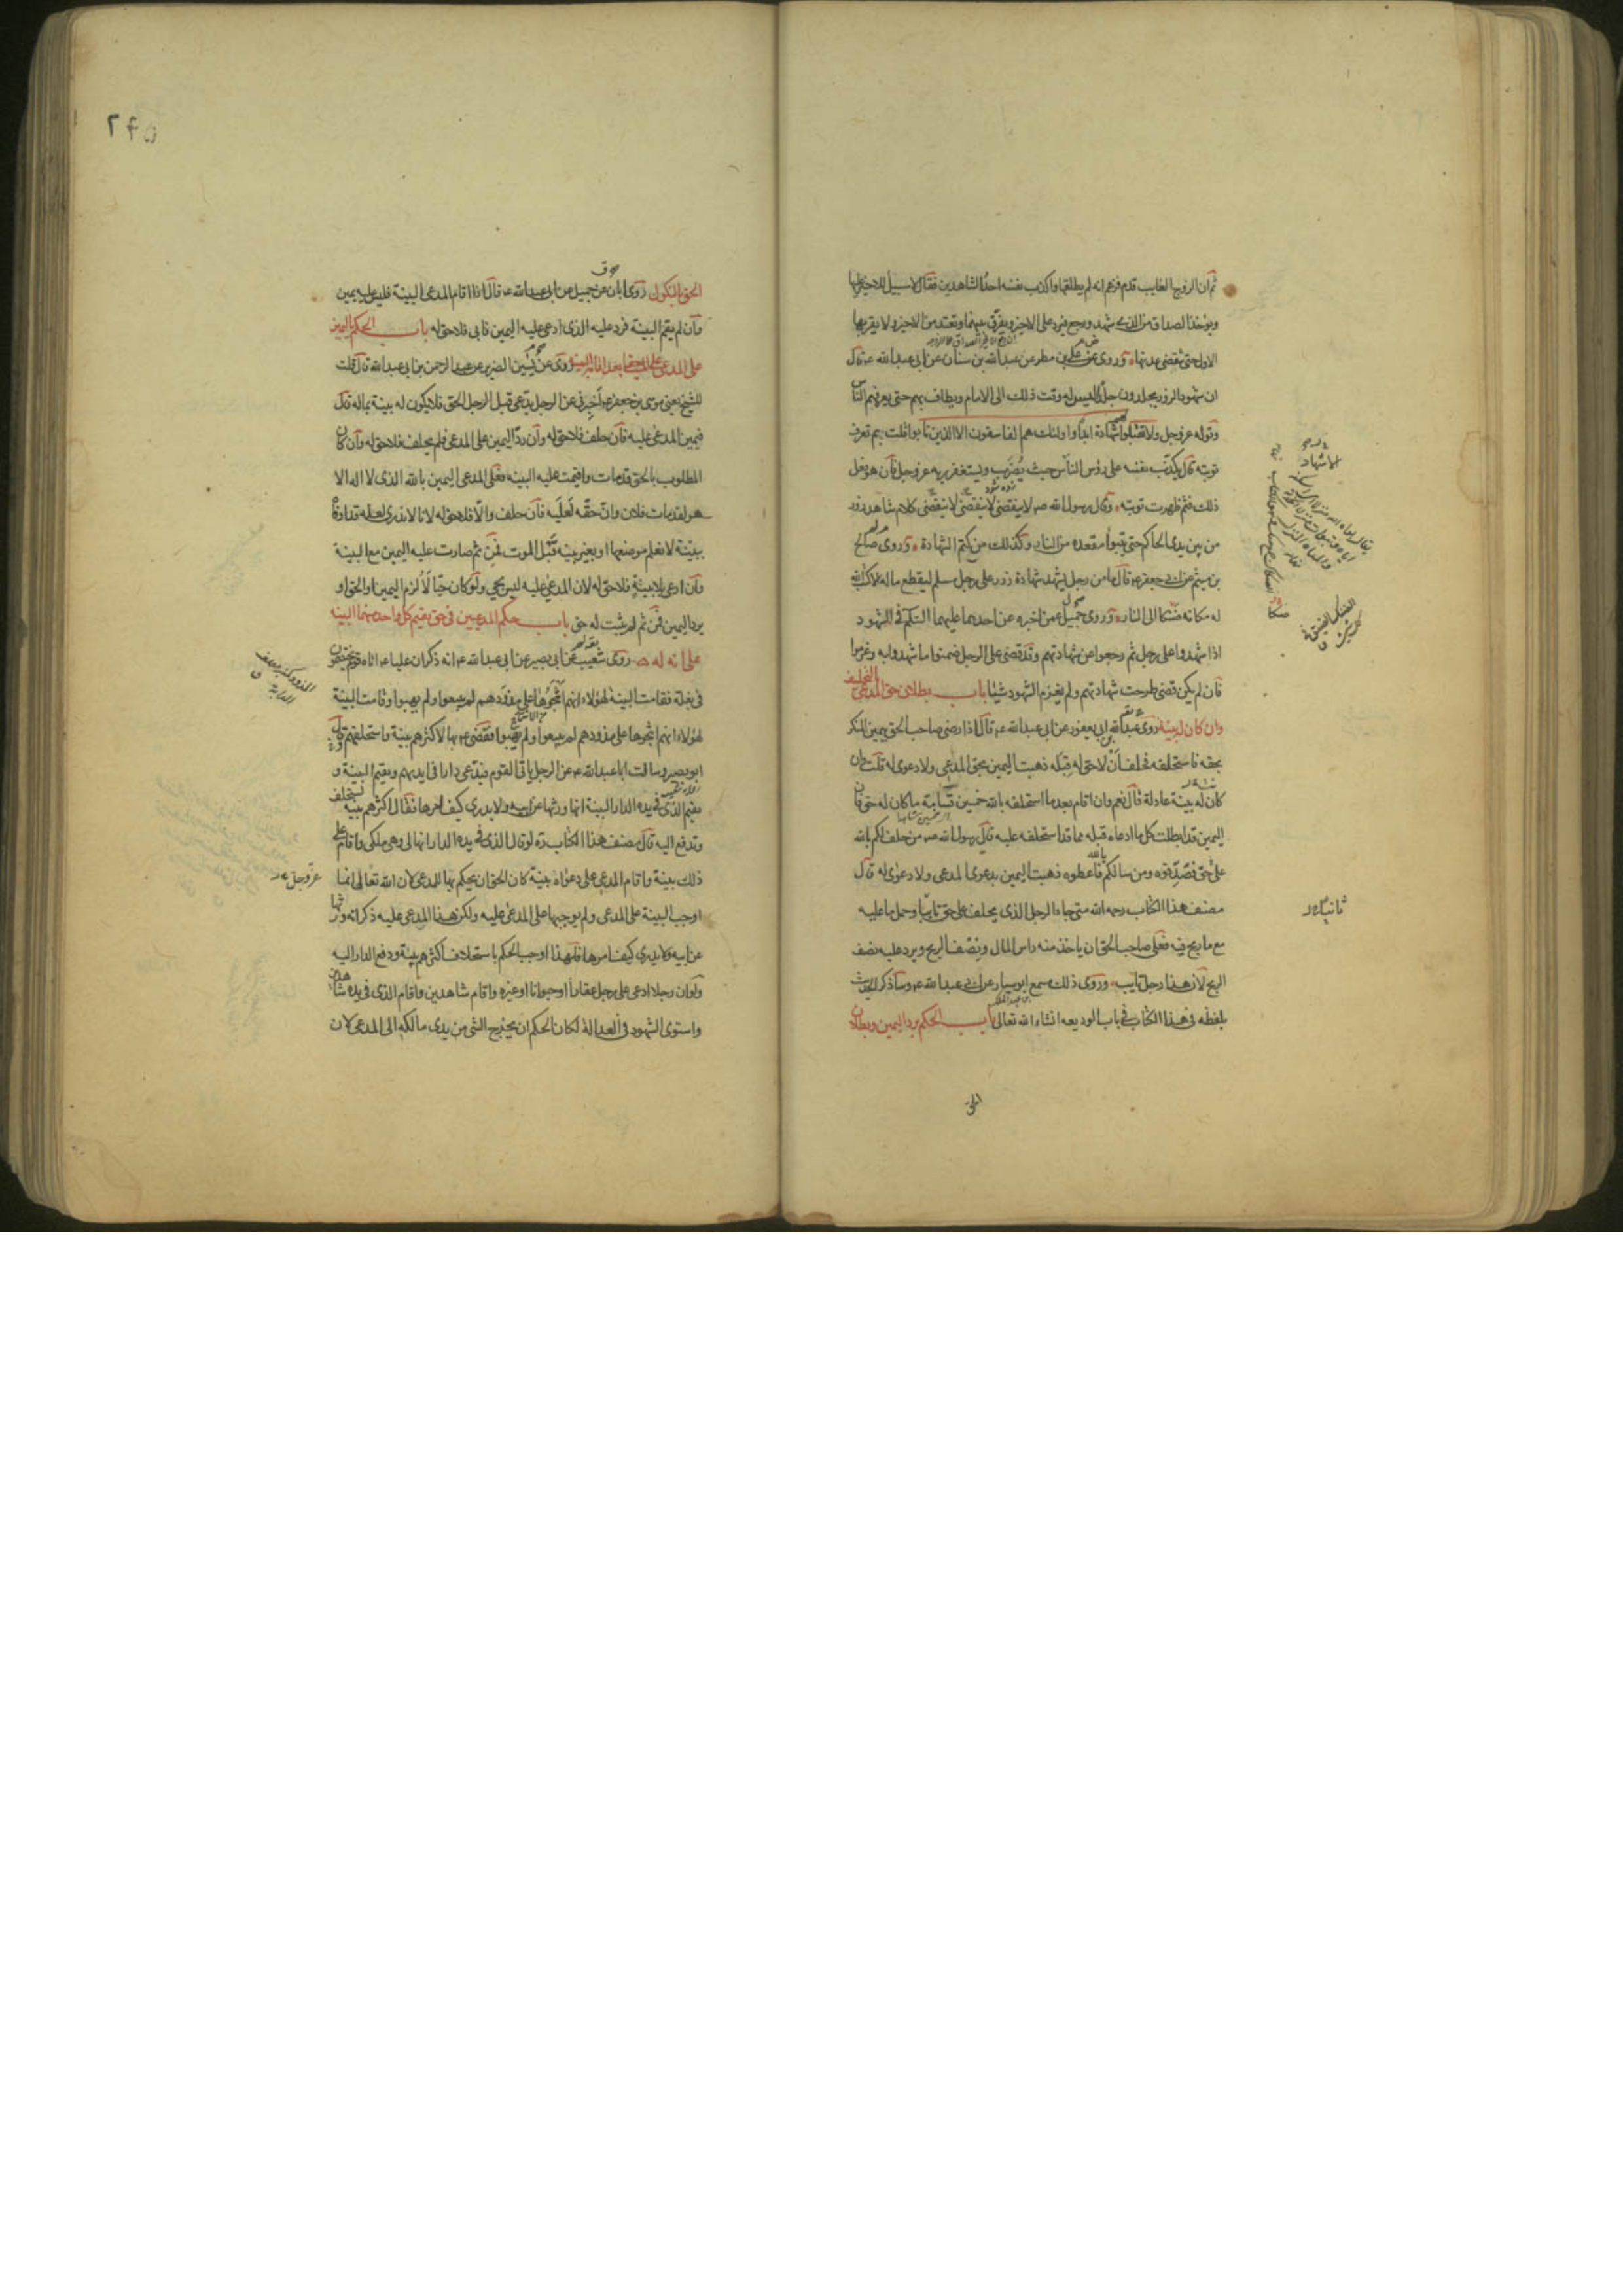 ثم ان الزوج الغايب قدم فزعم انه لم يطلقها واكذب نفسه احد الشاهدين فقال لا سبيل للاخير عليها
ويؤخذ الصداق من الذي شهد ورجع فيرد على الاخير ويفرق بينهما وتعتد من الاخير ولا يقربها
الاول حتى تنقضى عدتها وروى عن على بن مطر عن عبدالله بن سنان عن ابى عبدالله ع قال
ان شهود الزور يجلدون جلدا ليس له وقت ذلك الى الامام ويطاف بهم حتى يعرفهم الناس
وقوله عزوجل ولا تقبلوا لهم شهادة ابدا واولئك هم الفاسقون الا الذين تابوا قلت بم تعرف
توبته قال يكذب نفسه على رؤس الناس حيث يضرب ويستغفر ربه عزوجل فان هو فعل
ذلك فثم ظهرت توبته وقال رسول الله ص لا ينقضى كلام شاهد زور
من بين يدى الحاكم حتى يتبوأ مقعده من النار وكذلك من كتم الشهادة وروى صالح
بن ميثم عن ابى جعفر ع قال ما من رجل يشهد شهادة زور على رجل مسلم ليقطع ماله الا كتب الله
له مكانه ضنكا الى النار وروى جميل عمن اخبره عن احدهما عليهما السلم فى الشهود
اذا شهدوا على رجل ثم رجعوا عن شهادتهم وقد قضى على الرجل ضمنوا ما شهدوا به وغرموا
فان لم يكن قضى طرحت شهادتهم ولم يغرم الشهود شيئا باب بطلان حق المدعى بالتحليف
وان كان له بينة روى عبدالله بن ابى يعفور عن ابى عبدالله ع قال اذا رضى صاحب الحق بيمين المنكر
بحقه فاستحلفه فحلف ان لا حق له قبله ذهبت اليمين بحق المدعى ولا دعوى له قلت وان
كان له بينة عادلة قال نعم وان اقام بعد ما استحلفه بالله خمسين قسامة ما كان له حق فان
اليمين قد ابطلت كل ما ادعاه قبله مما قد استحلفه عليه قال رسول الله ص من حلف لكم بالله
على حق فصدقوه ومن سالكم بالله فاعطوه ذهبت اليمين بدعوى المدعى ولا دعوى له قال
مصنف هذا الكتاب رحمه الله متى جاء الرجل الذى يحلف على حق تايبا وحمل ما عليه
مع ما ربح فيه فعلى صاحب الحق ان ياخذ منه راس المال ونصف الربح ويرد عليه نصف
الربح لان هذا رجل تايب وروى ذلك مسمع ابو سيار عن ابى عبدالله ع وساذكر الحديث
بلفظه فى هذا الكتاب فى باب الوديعه انشاء الله تعالى باب الحكم برد اليمين وبطلان
الحق
ثانيا
الحق بالنكول روى ابان عن جميل عن ابى عبدالله ع قال اذا اقام المدعى البينة فليس عليه يمين
وان لم يقم البينة فرد عليه الذى ادعى عليه اليمين فابى فلا حق له باب الحكم باليمين
على المدعى على الميت حقا بعد اقامة البينة روى عن يسين الضرير عن عبد الرحمن بن ابى عبدالله قال قلت
للشيخ يعنى موسى بن جعفر ع اخبرنى عن الرجل يدعى قبل الرجل الحق فلا يكون له بينة بماله قال
فيمين المدعى عليه فان حلف فلا حق له وان رد اليمين على المدعى فلم يحلف فلا حق له وان كان
المطلوب بالحق قد مات واقيمت عليه البينه فعلى المدعى اليمين بالله الذى لا اله الا
هو لقد مات فلان وان حقه لعليه فان حلف والا فلا حق له لانا لا ندرى لعله قد اوفاه
ببينة لا نعلم موضعها او بغير بينة قبل الموت فمن ثم صارت عليه اليمين مع البينة
وان ادعى بلا بينة فلا حق له لان المدعى عليه ليس بحى ولو كان حيا لالزم اليمين او الحق او
يرد اليمين فمن ثم لم يثبت له حق باب حكم المدعيين فى حق يقيم كل واحد منهما البينه
على انه له روى شعيب عن ابى بصير عن ابى عبدالله ع انه ذكر ان عليا ع اتاه قوم يختصمون
فى بغلة فقامت البينة لهؤلاء انهم انتجوها على مذودهم لم يبيعوا ولم يهبوا وقامت البينة
لهؤلاء انهم انتجوها على مذودهم لم يبيعوا ولم يهبوا فقضى ع بها لاكثرهم بينة واستحلفهم قال
ابو بصير وسالت ابا عبدالله ع عن الرجل ياتى القوم فيدعى دارا فى ايديهم ويقيم البينة و
يقيم الذى فى يده الدار البينة انها ورثها عن ابيه ولا يدرى كيف امرها فقال اكثرهم بينة يستحلف
وتدفع اليه قال مصنف هذا الكتاب ره لو قال الذى فى يده الدار انها لى وهى ملكى واقام على
ذلك بينة واقام المدعى على دعواه بينة كان الحق ان يحكم بها للمدعى لان الله تعالى انما
اوجب البينة على المدعى ولم يوجبها على المدعى عليه ولكن هذا المدعى عليه ذكر انه ورثها
عن ابيه ولا يدرى كيف امرها فلهذا اوجب الحكم باستحلاف اكثرهم بينة ودفع الدار اليه
ولو ان رجلا ادعى على رجل عقارا او حيوانا او غيره واقام شاهدين واقام الذى فى يده شاهدين
واستوى الشهود فى العدالة لكان الحكم ان يخرج الشى من يدى مالكه الى المدعى لان
عزوجل
۲۴۵